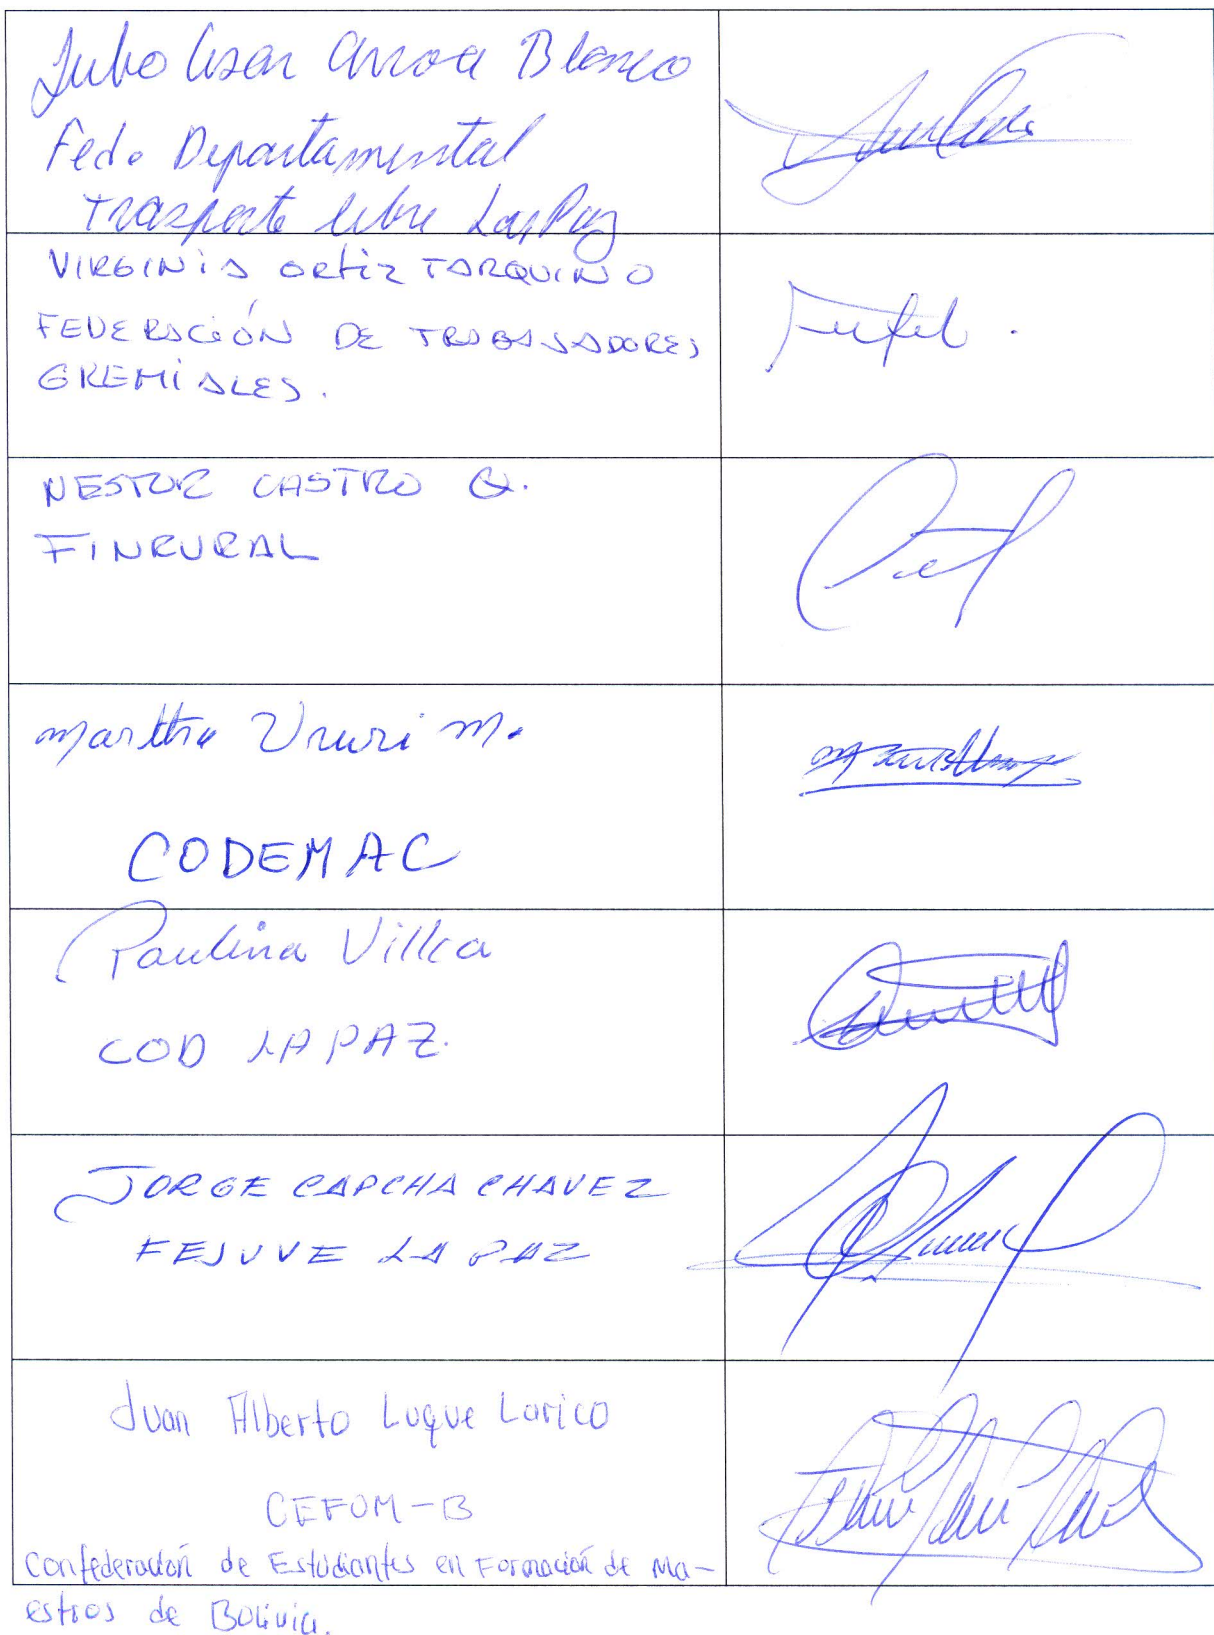 Julio Cesar Arroa Blanco
Fed. Departamental
Trasporte libre La Paz
VIRGINIA ORTIZ TARQUINO
FEDERACIÓN DE TRABAJADORES
GREMIALES.
NESTOR CASTRO Q.
FINRURAL
Martha Ururi M.
CODEMAC
Paulina Villca
COD LA PAZ.
JORGE CAPCHA CHAVEZ
FEJUVE LA PAZ
Juan Alberto Luque Larico
CEFOM-B
Confederación de Estudiantes en Formación de Ma-
estros de Bolivia.